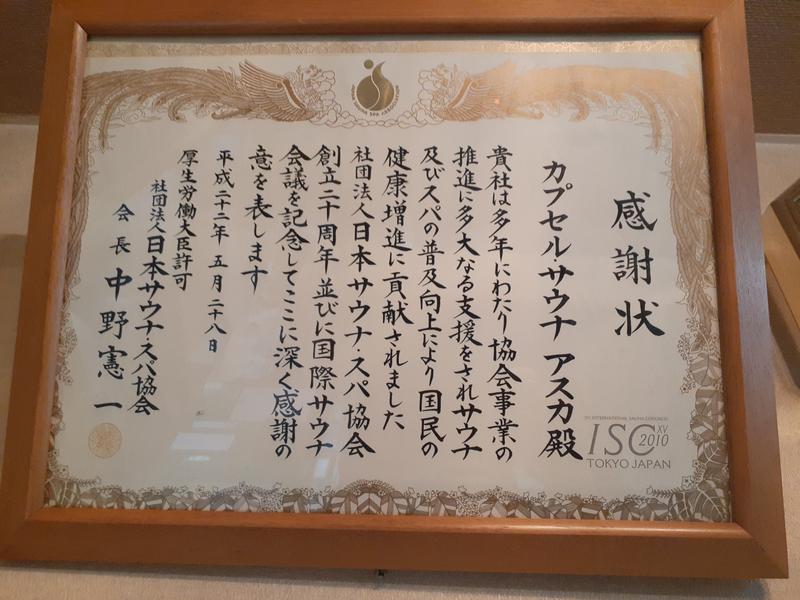 感謝状
カプセル・サウナ アスカ殿
貴社は多年にわたり協会事業の
推進に多大なる支援をされサウナ
及びスパの普及向上により国民の
健康増進に貢献されました
社団法人日本サウナ・スパ協会
創立二十周年並びに国際サウナ
会議を記念してここに深く感謝の
意を表します
平成二十二年 五月 二十八日
厚生労働大臣許可
社団法人日本サウナ・スパ協会
会長 中野憲一
XV INTERNATIONAL SAUNA CONGRESS
ISC XV 2010
TOKYO JAPAN